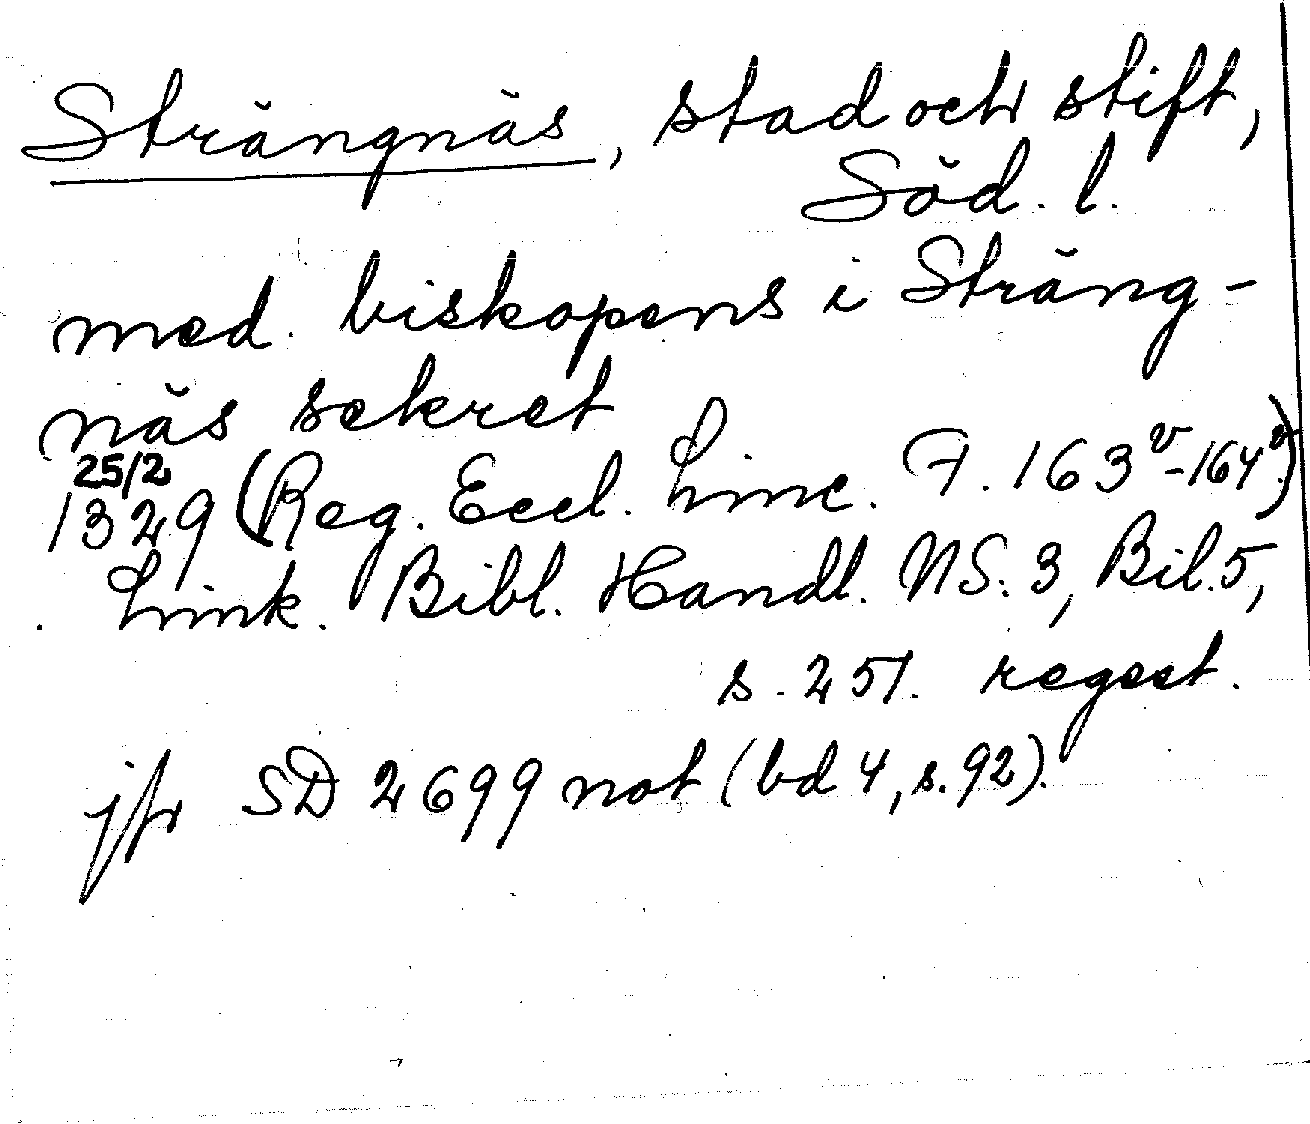 Strängnäs, stad och stift,
Söd. l.
med biskopens i Sträng-
näs sekret
25/2
1329 (Reg. Eccl. Linc. F. 163v-164v)
Link. Bibl. Handl. NS. 3, Bil. 5,
s. 251. regest.
jfr SD 2699 not (bd 4, s. 92).